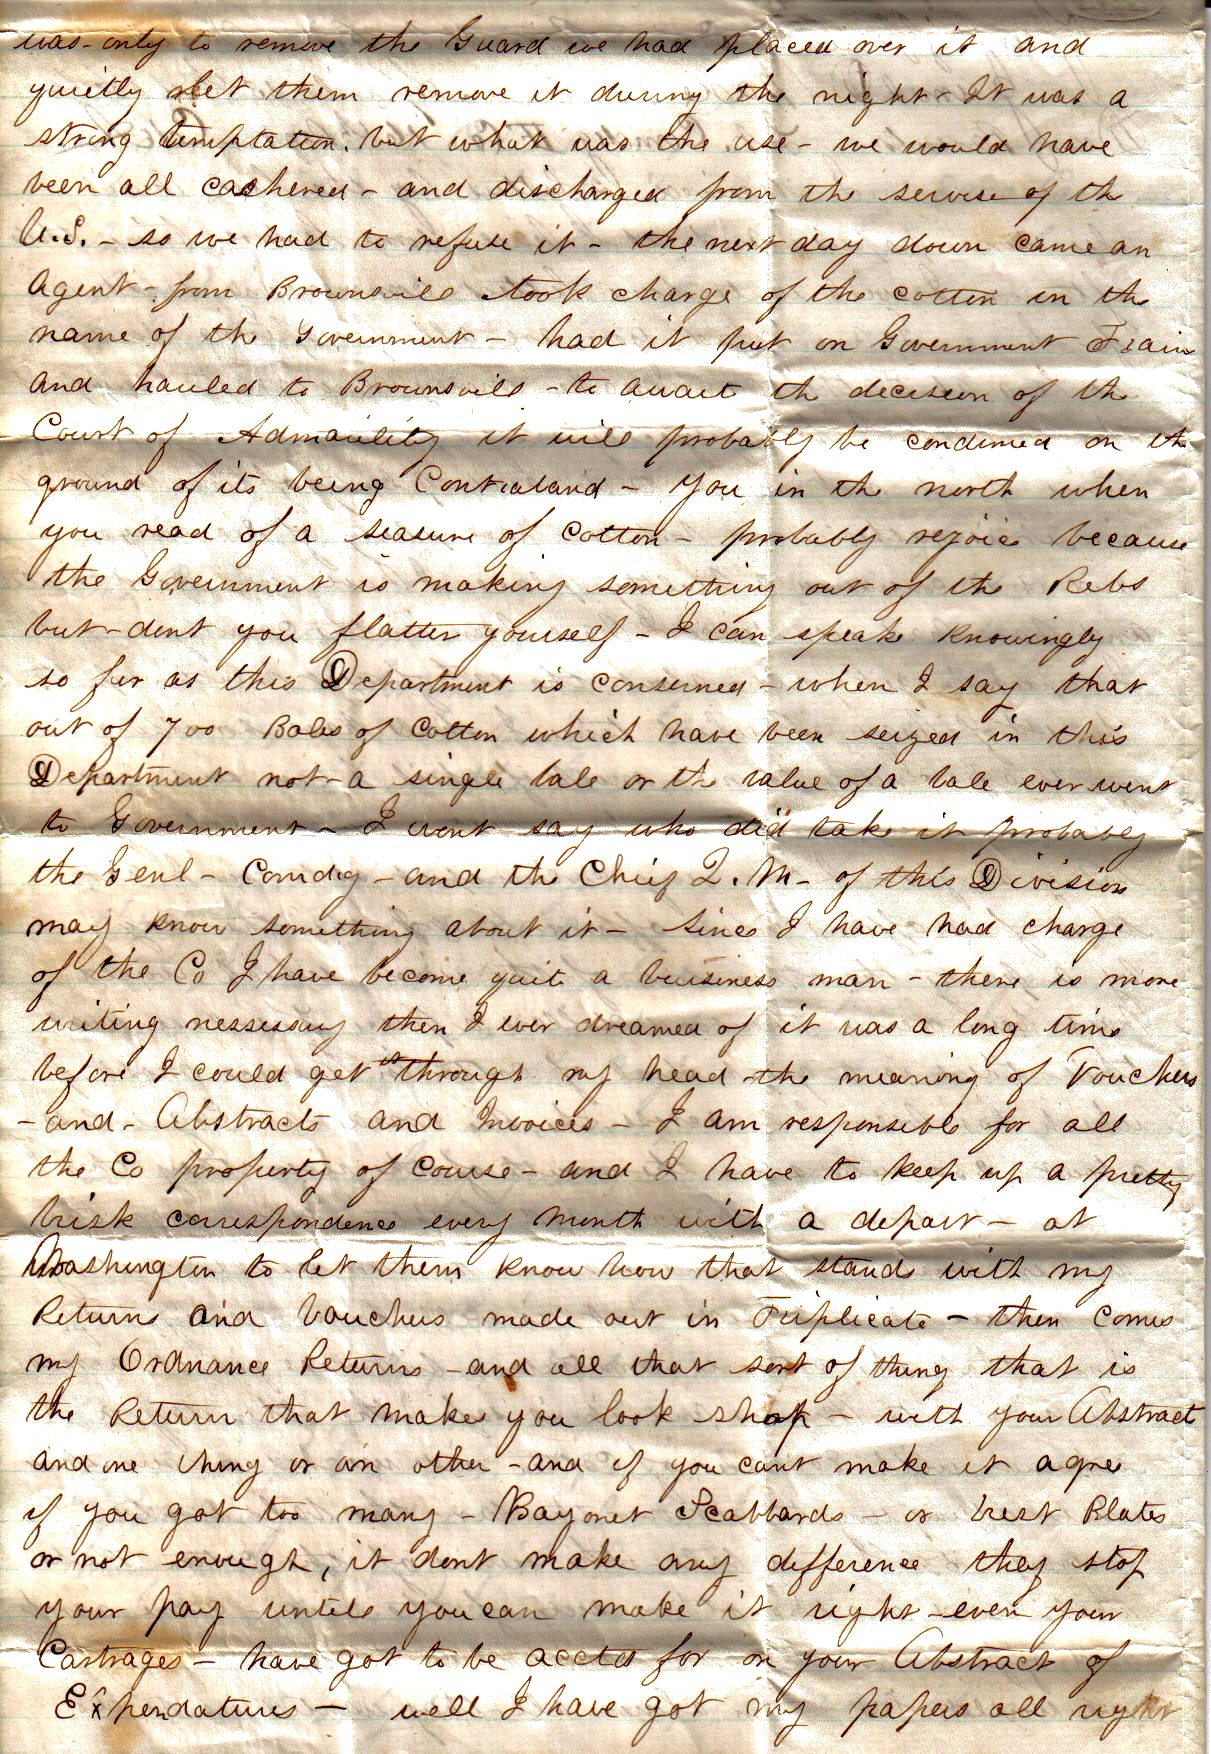 was only to remove the Guard we had placed over it and
quietly let them remove it during the night - It was a
strong temptation. but what was the use - we would have
been all cashered - and discharged from the servise of th
U.S. - so we had to refuse it - the next day down came an
Agent - from Brownsvile took charge of the cotton in the
name of the Government - had it put on Government Train
and hauled to Brownsvile - to await the decision of the
Court of Admarility it will probably be condimed on the
ground of its being Contraband - you in the north when
you read of a seasure of cotton - probably rejoice because
the Government is making something out of the Rebs
but - dont you flatter yourself - I can speak knowingly
so fur as this Department is conserned - when I say that
out of 700 Bales of Cotton which have been seized in this
Department not a single bale or the value of a bale ever went
to Government - I wont say who did take it probably
the Genl - Comdig - and the Chief Q.M. of this Division
may know something about it - since I have had charge
of the Co I have become quite a buisiness man - there is more
writing nessessary then I ever dreamed of it was a long time
before I could get it through my head the meaning of Vouchers
- and - Abstracts and Invoices - I am responsible for all
the Co property of Course - and I have to keep up a pretty
brisk correspondence every month with a depart - at
Washington to let them know how that stands with my
Returns and Vouchers made out in Triplicate - then comes
my Ordnance Returns - and all that sort of thing that is
the Return that makes you look sharp - with your Abstract
and one thing or an other - and if you cant make it agree
if you got too many - Bayonet Scabbards - or brest Plates
or not enough, it dont make any difference they stop
your pay untill you can make it right - even your
Cartrages - have got to be acctd for on your Abstract of
Expendatures - well I have got my papers all right